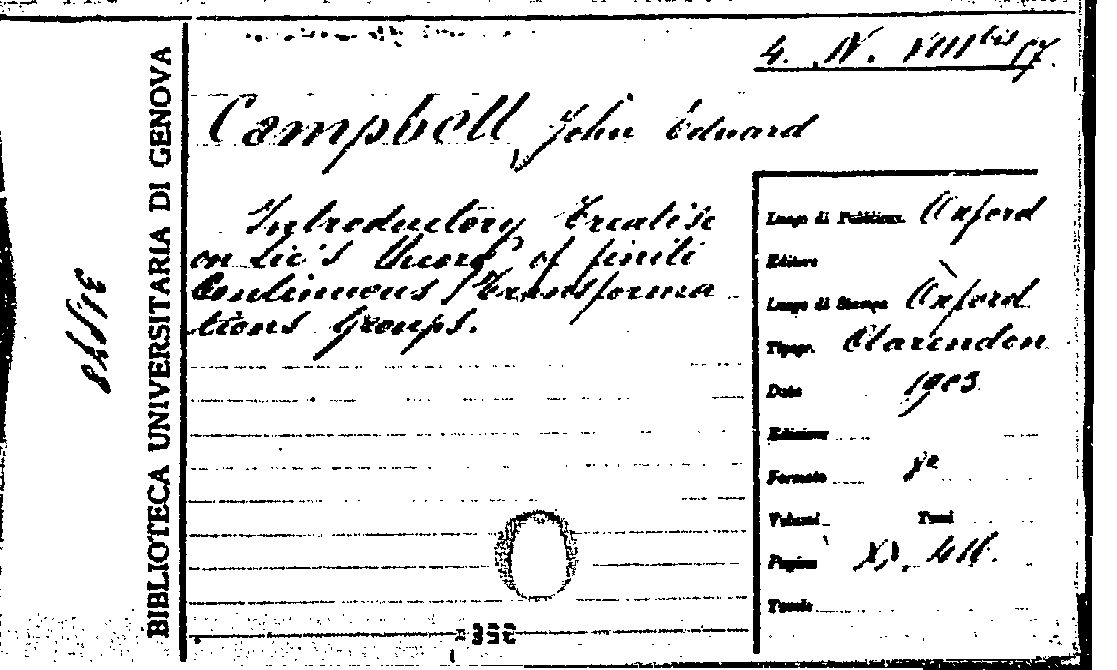 4. N. VIII bis 17.
Campbell, John Eduard
Introductory Treatise
on Lie's theory of finiti
Continuous Transforma
tions Groups.
Luogo di Pubblicaz. Oxford
Editore
Luogo di Stampa Oxford
Tipogr. Clarendon
Data 1903
Edizione
Formato 8º
Volumi Tomi
Pagine XX, 416.
Tavole
BIBLIOTECA UNIVERSITARIA DI GENOVA